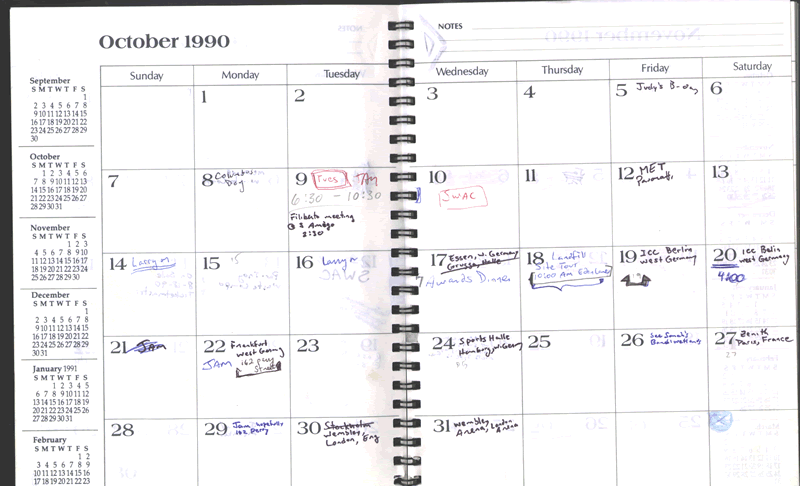 NOTES
October 1990
Sunday Monday Tuesday Wednesday Thursday Friday Saturday
September
S M T W T F S
1
2 3 4 5 6 7 8
9 10 11 12 13 14 15
16 17 18 19 20 21 22
23 24 25 26 27 28 29
30
October
S M T W T F S
1 2 3 4 5 6
7 8 9 10 11 12 13
14 15 16 17 18 19 20
21 22 23 24 25 26 27
28 29 30 31
November
S M T W T F S
1 2 3
4 5 6 7 8 9 10
11 12 13 14 15 16 17
18 19 20 21 22 23 24
25 26 27 28 29 30
December
S M T W T F S
1
2 3 4 5 6 7 8
9 10 11 12 13 14 15
16 17 18 19 20 21 22
23 24 25 26 27 28 29
30 31
January 1991
S M T W T F S
1 2 3 4 5
6 7 8 9 10 11 12
13 14 15 16 17 18 19
20 21 22 23 24 25 26
27 28 29 30 31
February
S M T W T F S
1 2
3 4 5 6 7 8 9
10 11 12 13 14 15 16
1
2
3
4
5 Judy's B-day
6
7
8 Columbus
Day
9 Tues 7AM
6:30 - 10:30
meeting
@ 3 Amigo
8:30
10
SWAC
11
12 MET
13
14 Larry M.
15
16 Larry M
SWAC
17 Essen, W. Germany
Halle
7 Awards Dinner
18 Landfill
Site Tour
10:00 AM
19 ICC Berlin
West Germany
20 ICC Berlin
West Germany
4:00
21 JAM
22 Frankfurt
West Germany
JAM 162 Perry
Street
23
24 Sports Halle
Hamburg, W. Germ
25
26 See Sarah's
27 Zenith
Paris, France
28
29 Jam
162 Perry
30 Stockholm
Wembley,
London, Eng
31 Wembley, London
Arena,